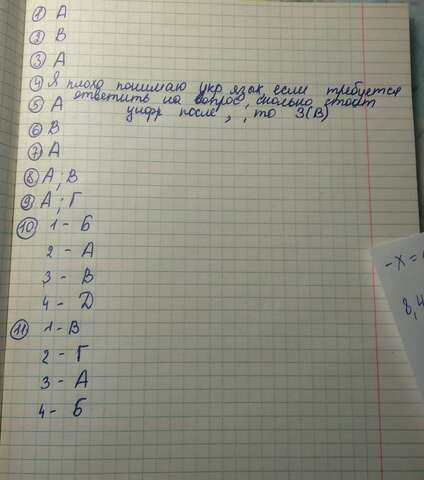 ① А
② В
③ А
④ Я плохо понимаю укр. язык, если требуется
ответить на вопрос, сколько стоит
цифр после , , то 3(В)
⑤ А
⑥ В
⑦ А
⑧ А; В
⑨ А; Г
⑩ 1 - Б
2 - А
3 - В
4 - Д
⑪ 1 - В
2 - Г
3 - А
4 - Б
-х =
8,4